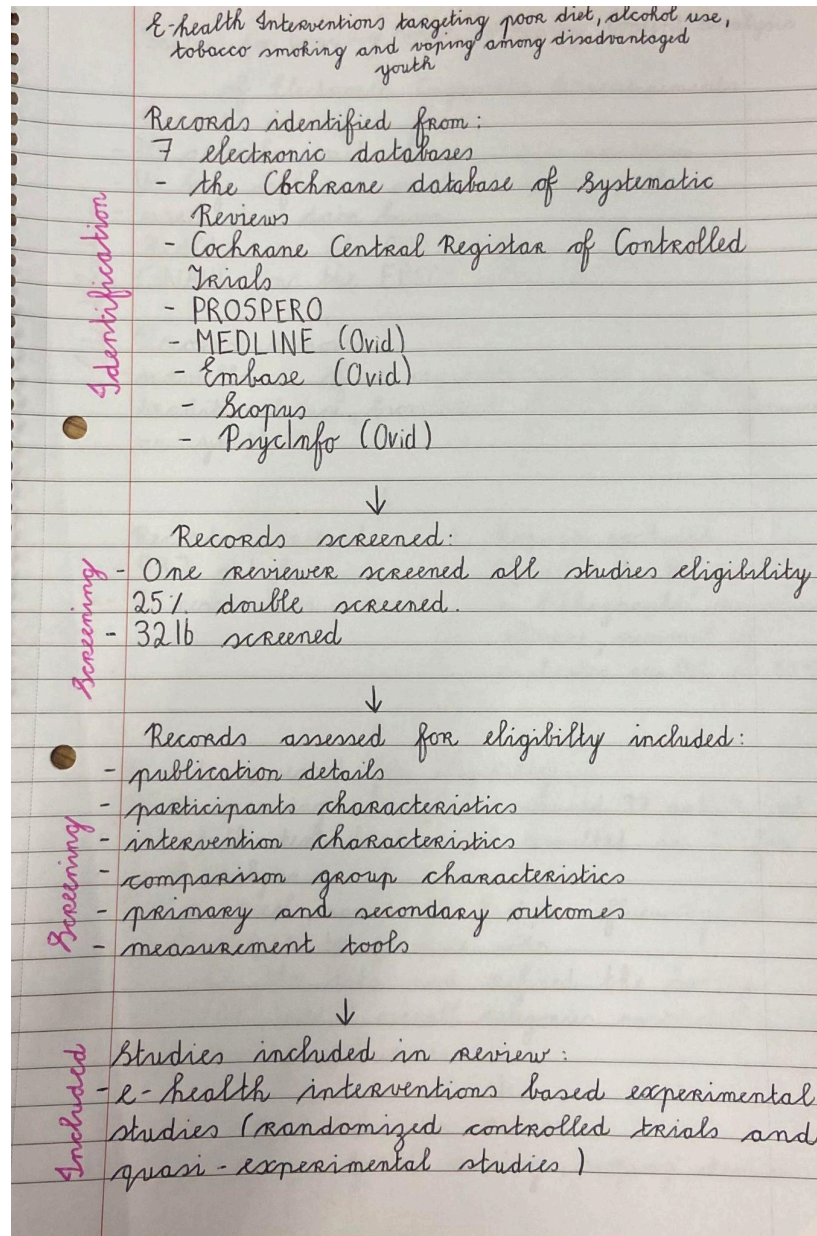 E-health Interventions targeting poor diet, alcohol use,
tobacco smoking and vaping among disadvantaged
youth
Identification
Records identified from:
7 electronic databases
- the Cochrane database of Systematic
Reviews
- Cochrane Central Registar of Controlled
Trials
- PROSPERO
- MEDLINE (Ovid)
- Embase (Ovid)
- Scopus
- PsycInfo (Ovid)
↓
Screening
Records screened:
- One reviewer screened all studies eligibility
25% double screened.
- 3216 screened
↓
Screening
Records assessed for eligibilty included:
- publication details
- participants characteristics
- intervention characteristics
- comparison group characteristics
- primary and secondary outcomes
- measurement tools
↓
Included
Studies included in review:
- e-health interventions based experimental
studies (randomized controlled trials and
quasi-experimental studies)